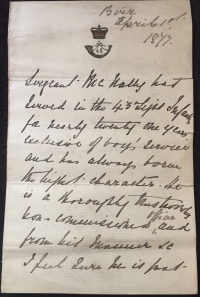 April 1st.
1877.
Sergeant Mc Nally has
served in the 43rd Light Infantry
for nearly twenty one years
exclusive of boy's service
and has always borne
the highest character. He
is a thoroughly trustworthy
non-commissioned officer and
from his manner &c
I feel sure he is